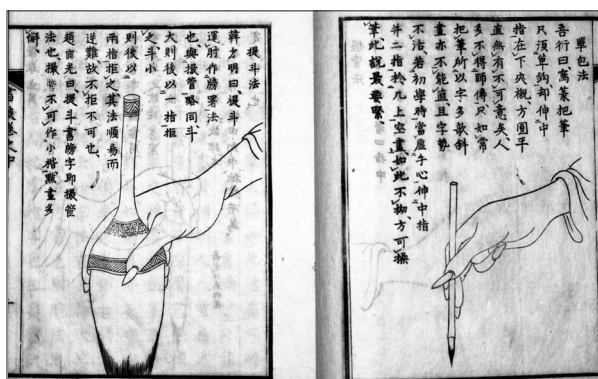 單包法
吾衍曰、寫篆把筆
只須單鈎却伸中
指在下夾襯、方圓平
直、無有不可意矣、人
多不得師傳、只如常
把筆、所以字多欹斜、
畫亦不能直、且字勢
不活、若初學時、當虛手心、伸中指
并二指、於几上空畫、如此不拗、方可操
筆、此說最要緊、
提斗法
韓方明曰、提斗
運肘作牓署法
也、與撮管略同、斗
大則後以一指拒
之、斗小
則後以
兩指拒之、其法順易而
逆難、故不拒不可也、
趙宧光曰、提斗書牓字、即撮管
法也、撮管不可作小楷、點畫多
卷之中